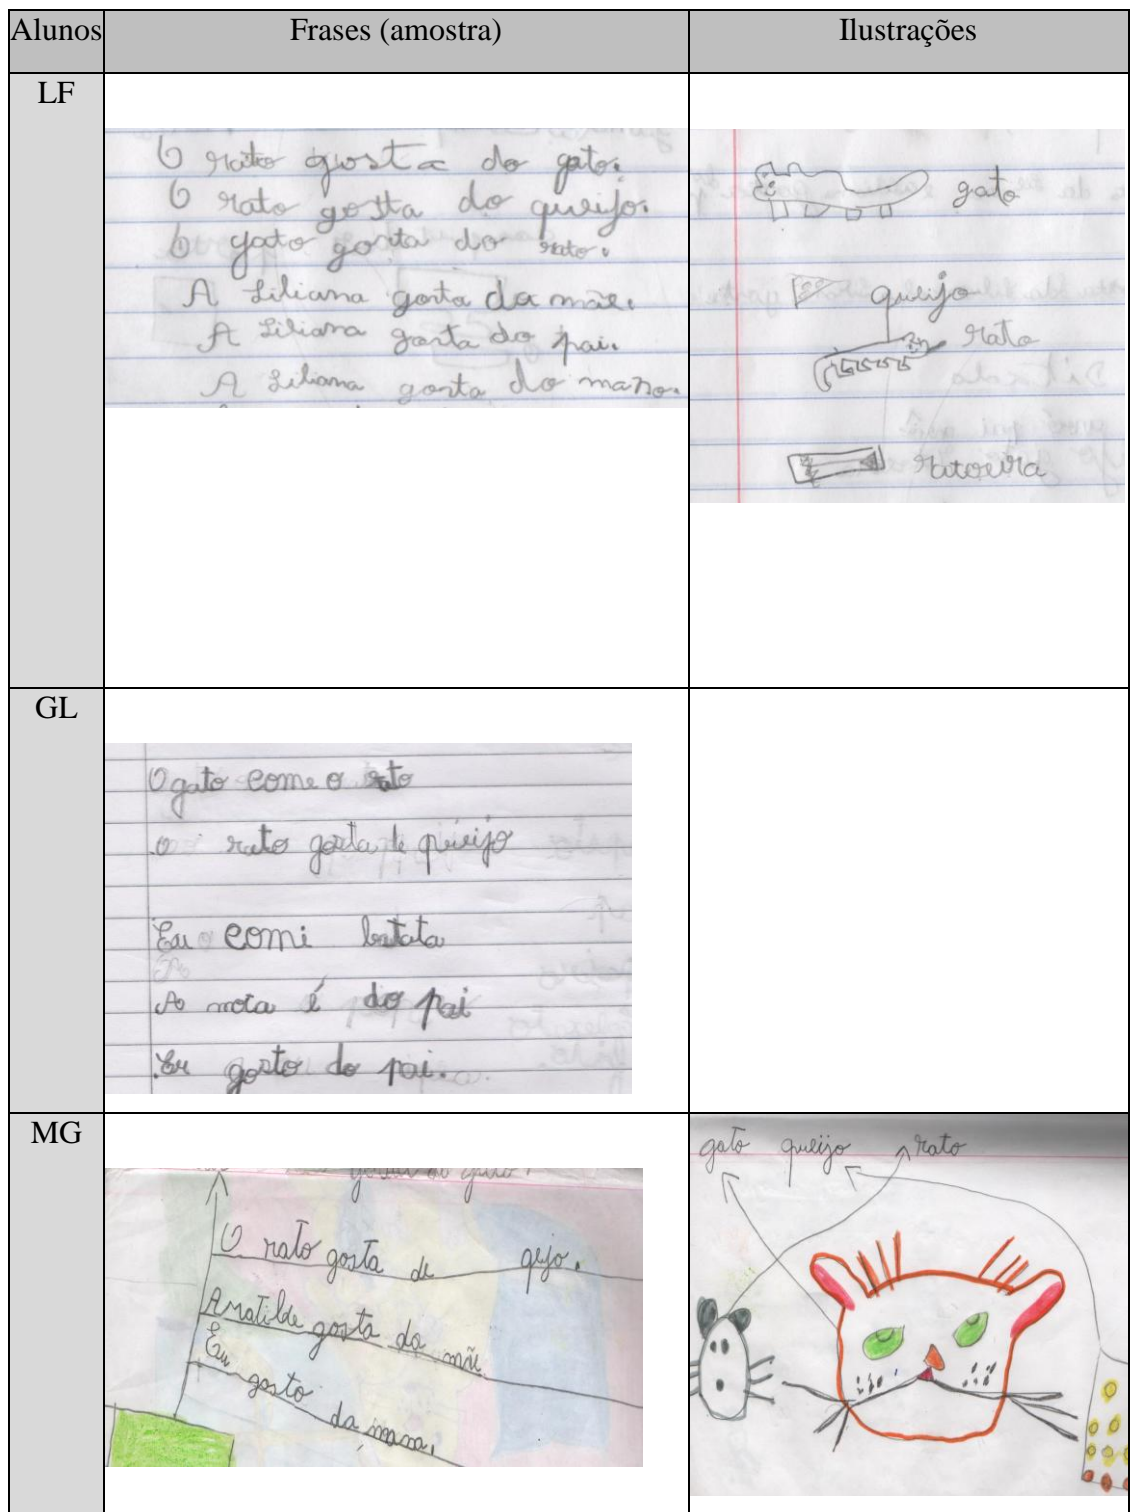 Alunos
Frases (amostra)
Ilustrações
LF
O rato gosta do gato.
O rato gosta do queijo.
O gato gosta do rato.
A Liliana gosta da mãe.
A Liliana gosta do pai.
A Liliana gosta do mano.
gato
queijo
rato
ratoeira
GL
O gato come o rato
O rato gosta de queijo
Eu comi batata
A mota é do pai
Eu gosto do pai.
MG
O rato gosta de qejo.
A matilde gosta da mãe
Eu gosto da mana.
gato queijo rato